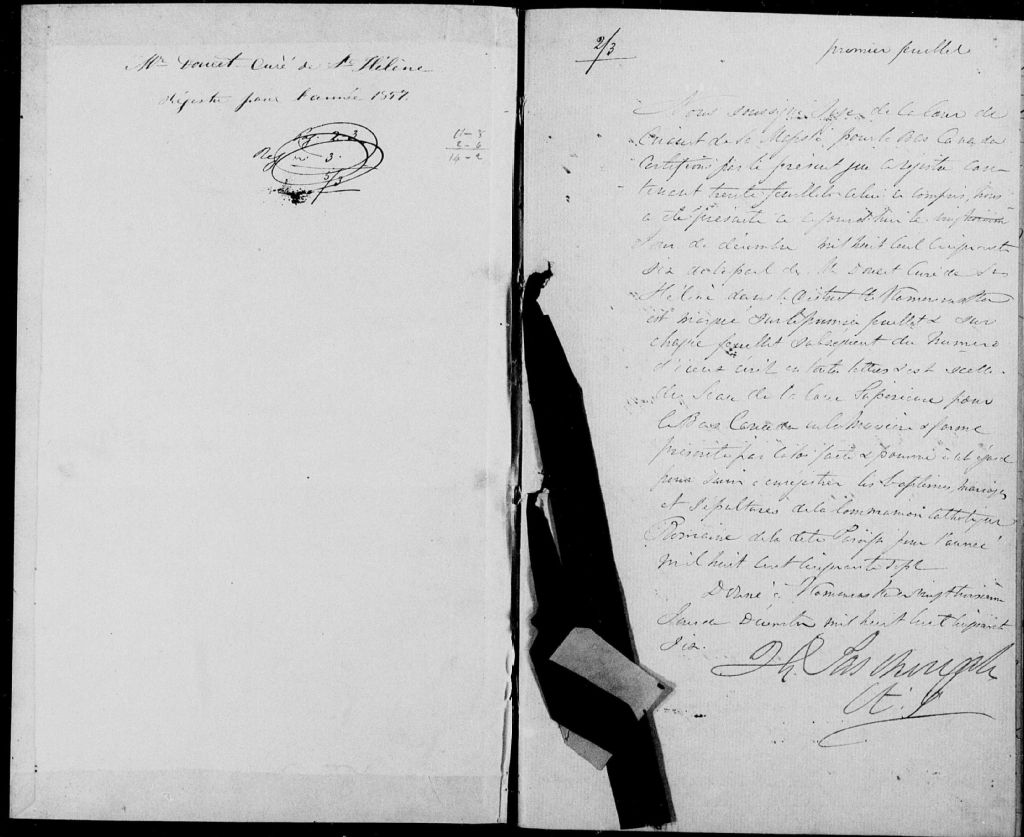 Mr Doucet Curé de Ste Hélène
Régistre pour l'année 1857.
Pg. 2-3
Reg n 3.
5/3
11-8
2-6
14-2
2/3
premier feuillet
Nous soussigné Juge de la Cour de
Circuit de sa Majesté pour le Bas Canada
Certifions par le présent que ce registre con-
tenant trente feuillets celui ci compris, nous
a été présenté ce aujourd'hui le vingt troisième
Jour de décembre mil huit cent cinquante
Six de la part de Mr Doucet Curé de Ste
Hélène dans le District de Kamouraska
est marqué sur le premier feuillet & sur
chaque feuillet subséquent du numéro
d'iceux écrit en toutes lettres & est scellé
du Sceau de la Cour Supérieure pour
le Bas Canada en la manière & forme
préscrite par la loi faite & pourvue à cet égard
pour servir à enregistrer les baptêmes, mariages
et Sépultures de la Communion Catholique
Romaine de la dite Paroisse pour l'année
mil huit cent cinquante Sept
Donné à Kamouraska ce vingt troisième
Jour de Décembre mil huit cent cinquante
Six.